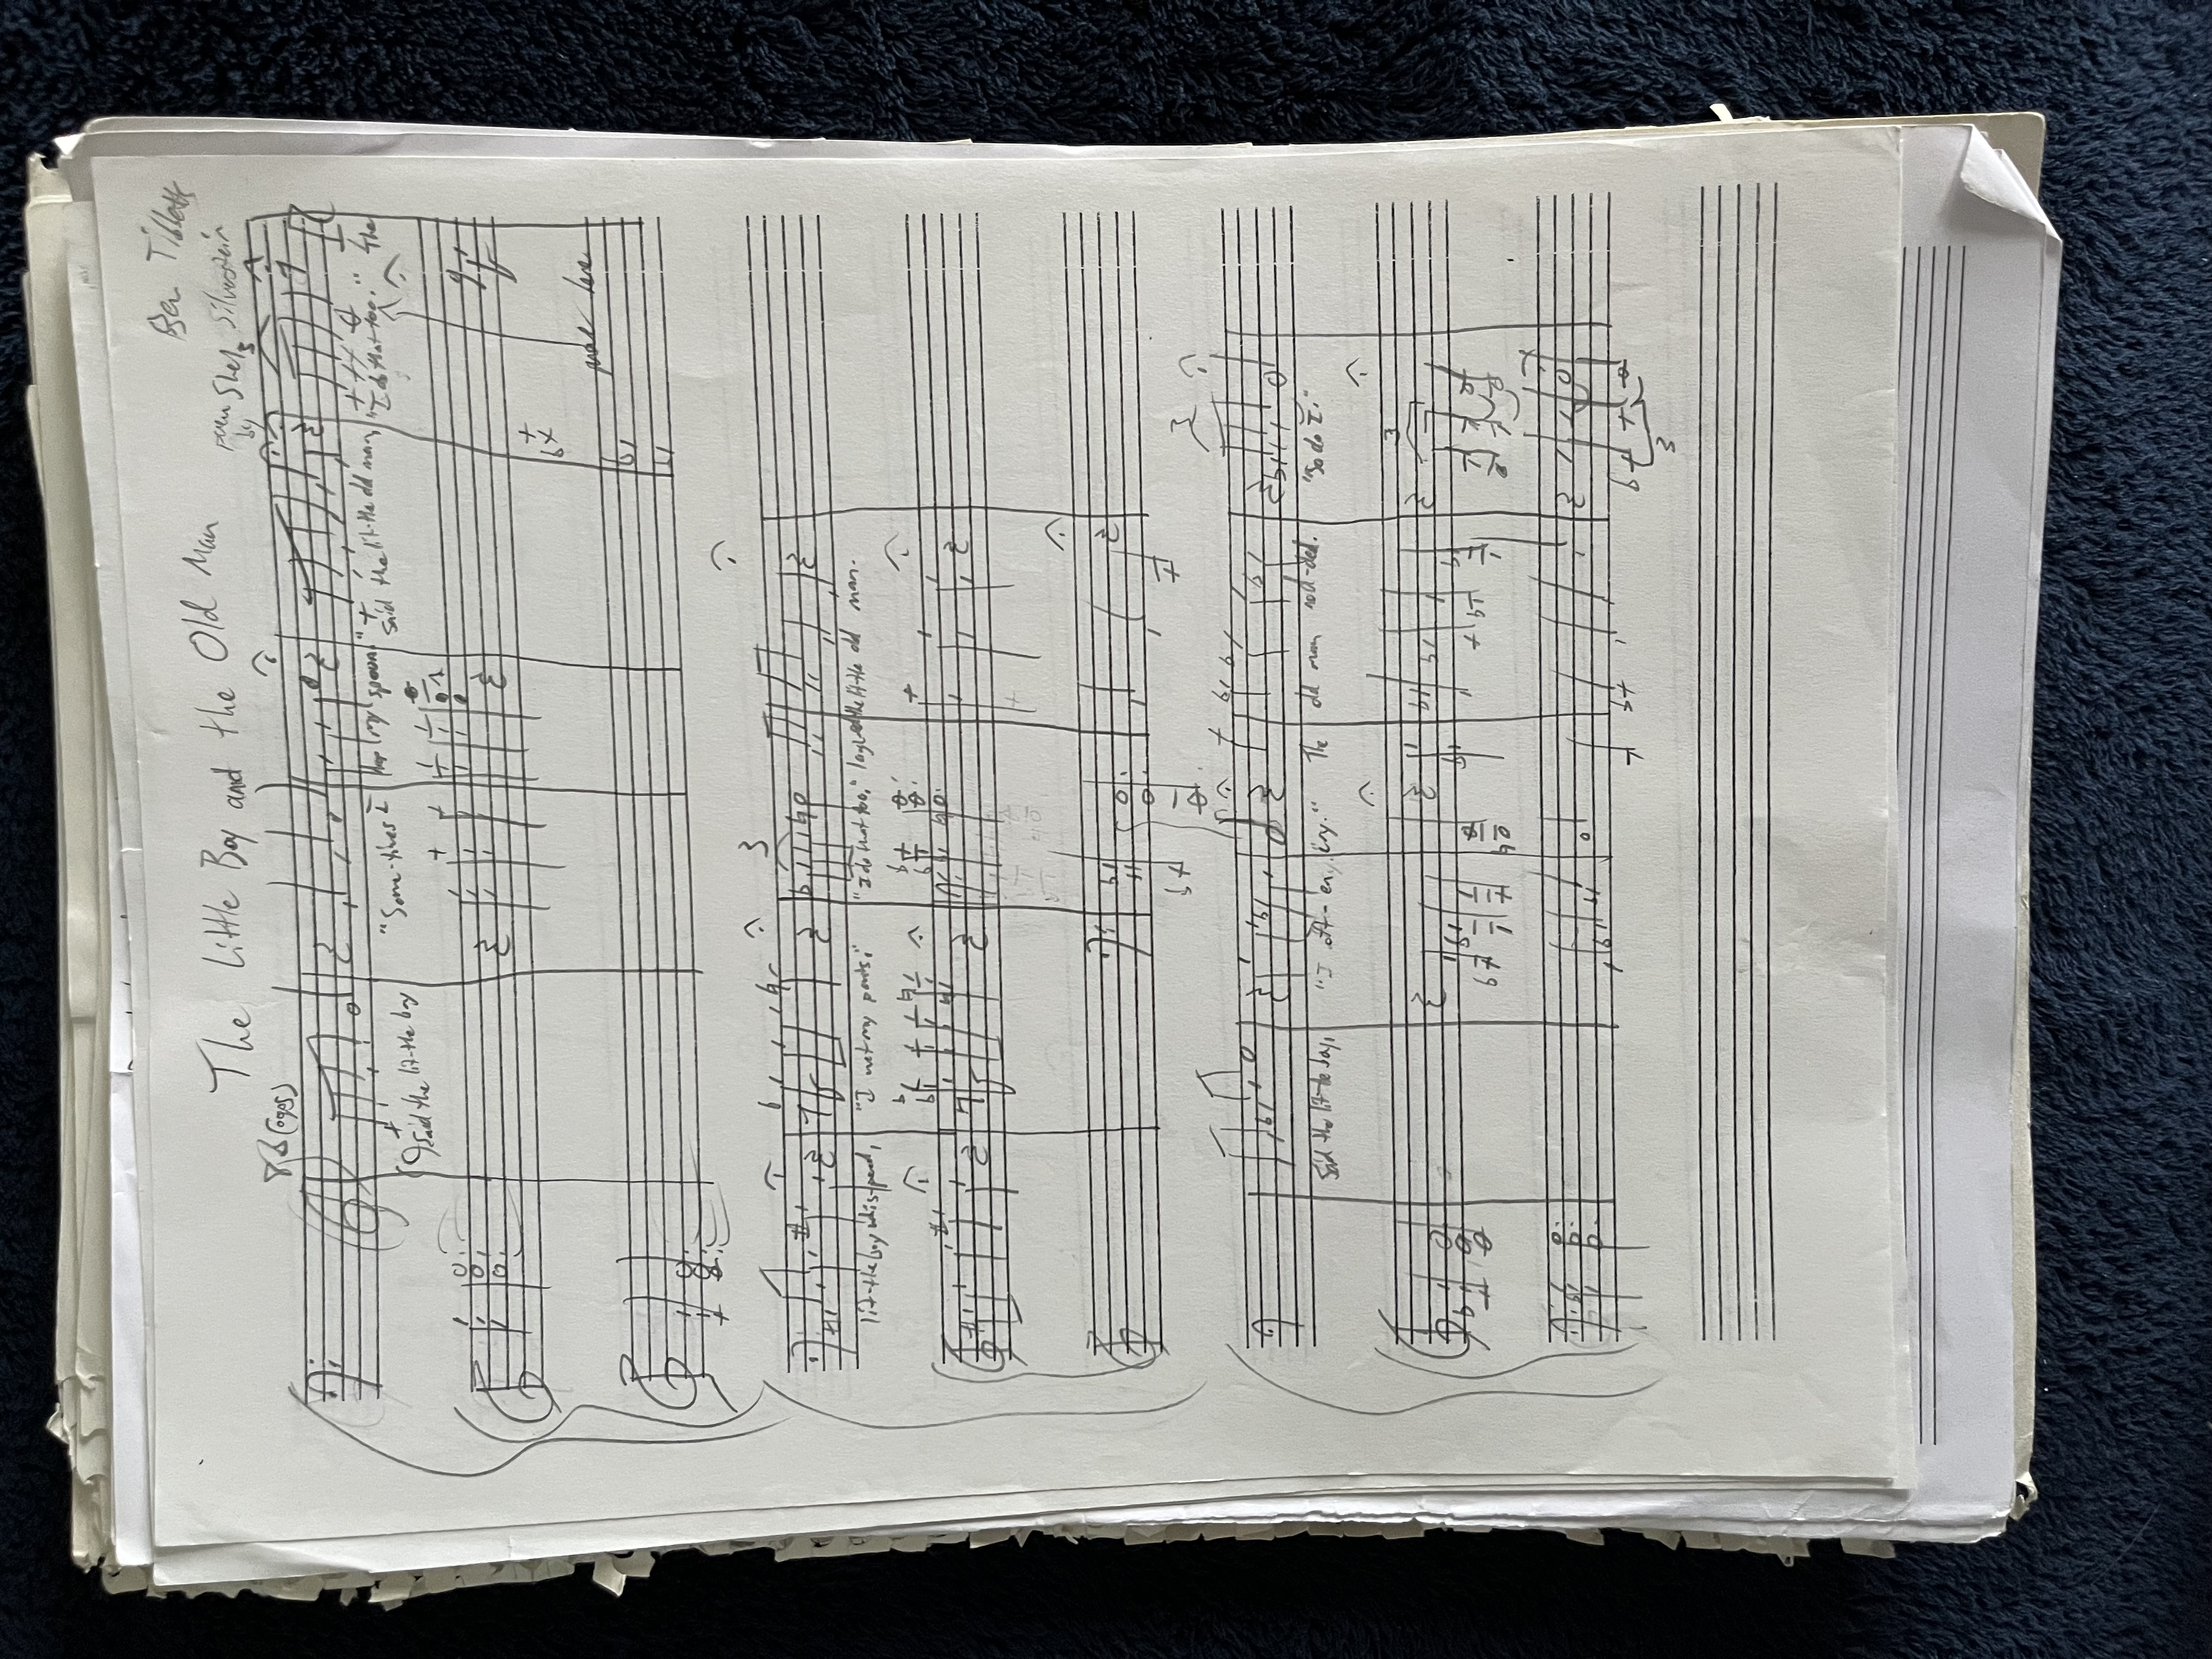 The Little Boy and the Old Man
Ben Tibbetts
poem by Shel Silverstein
Said the lit-tle boy "Some-times I drop my spoon." Said the lit-tle old man, "I do that too." The
3
lit-tle boy whis-pered, "I wet my pants." "I do that too," laughed the lit-tle old man.
3
Said the lit-tle boy, "I oft-en cry." The old man nod-ded. "So do I."
3
3
3